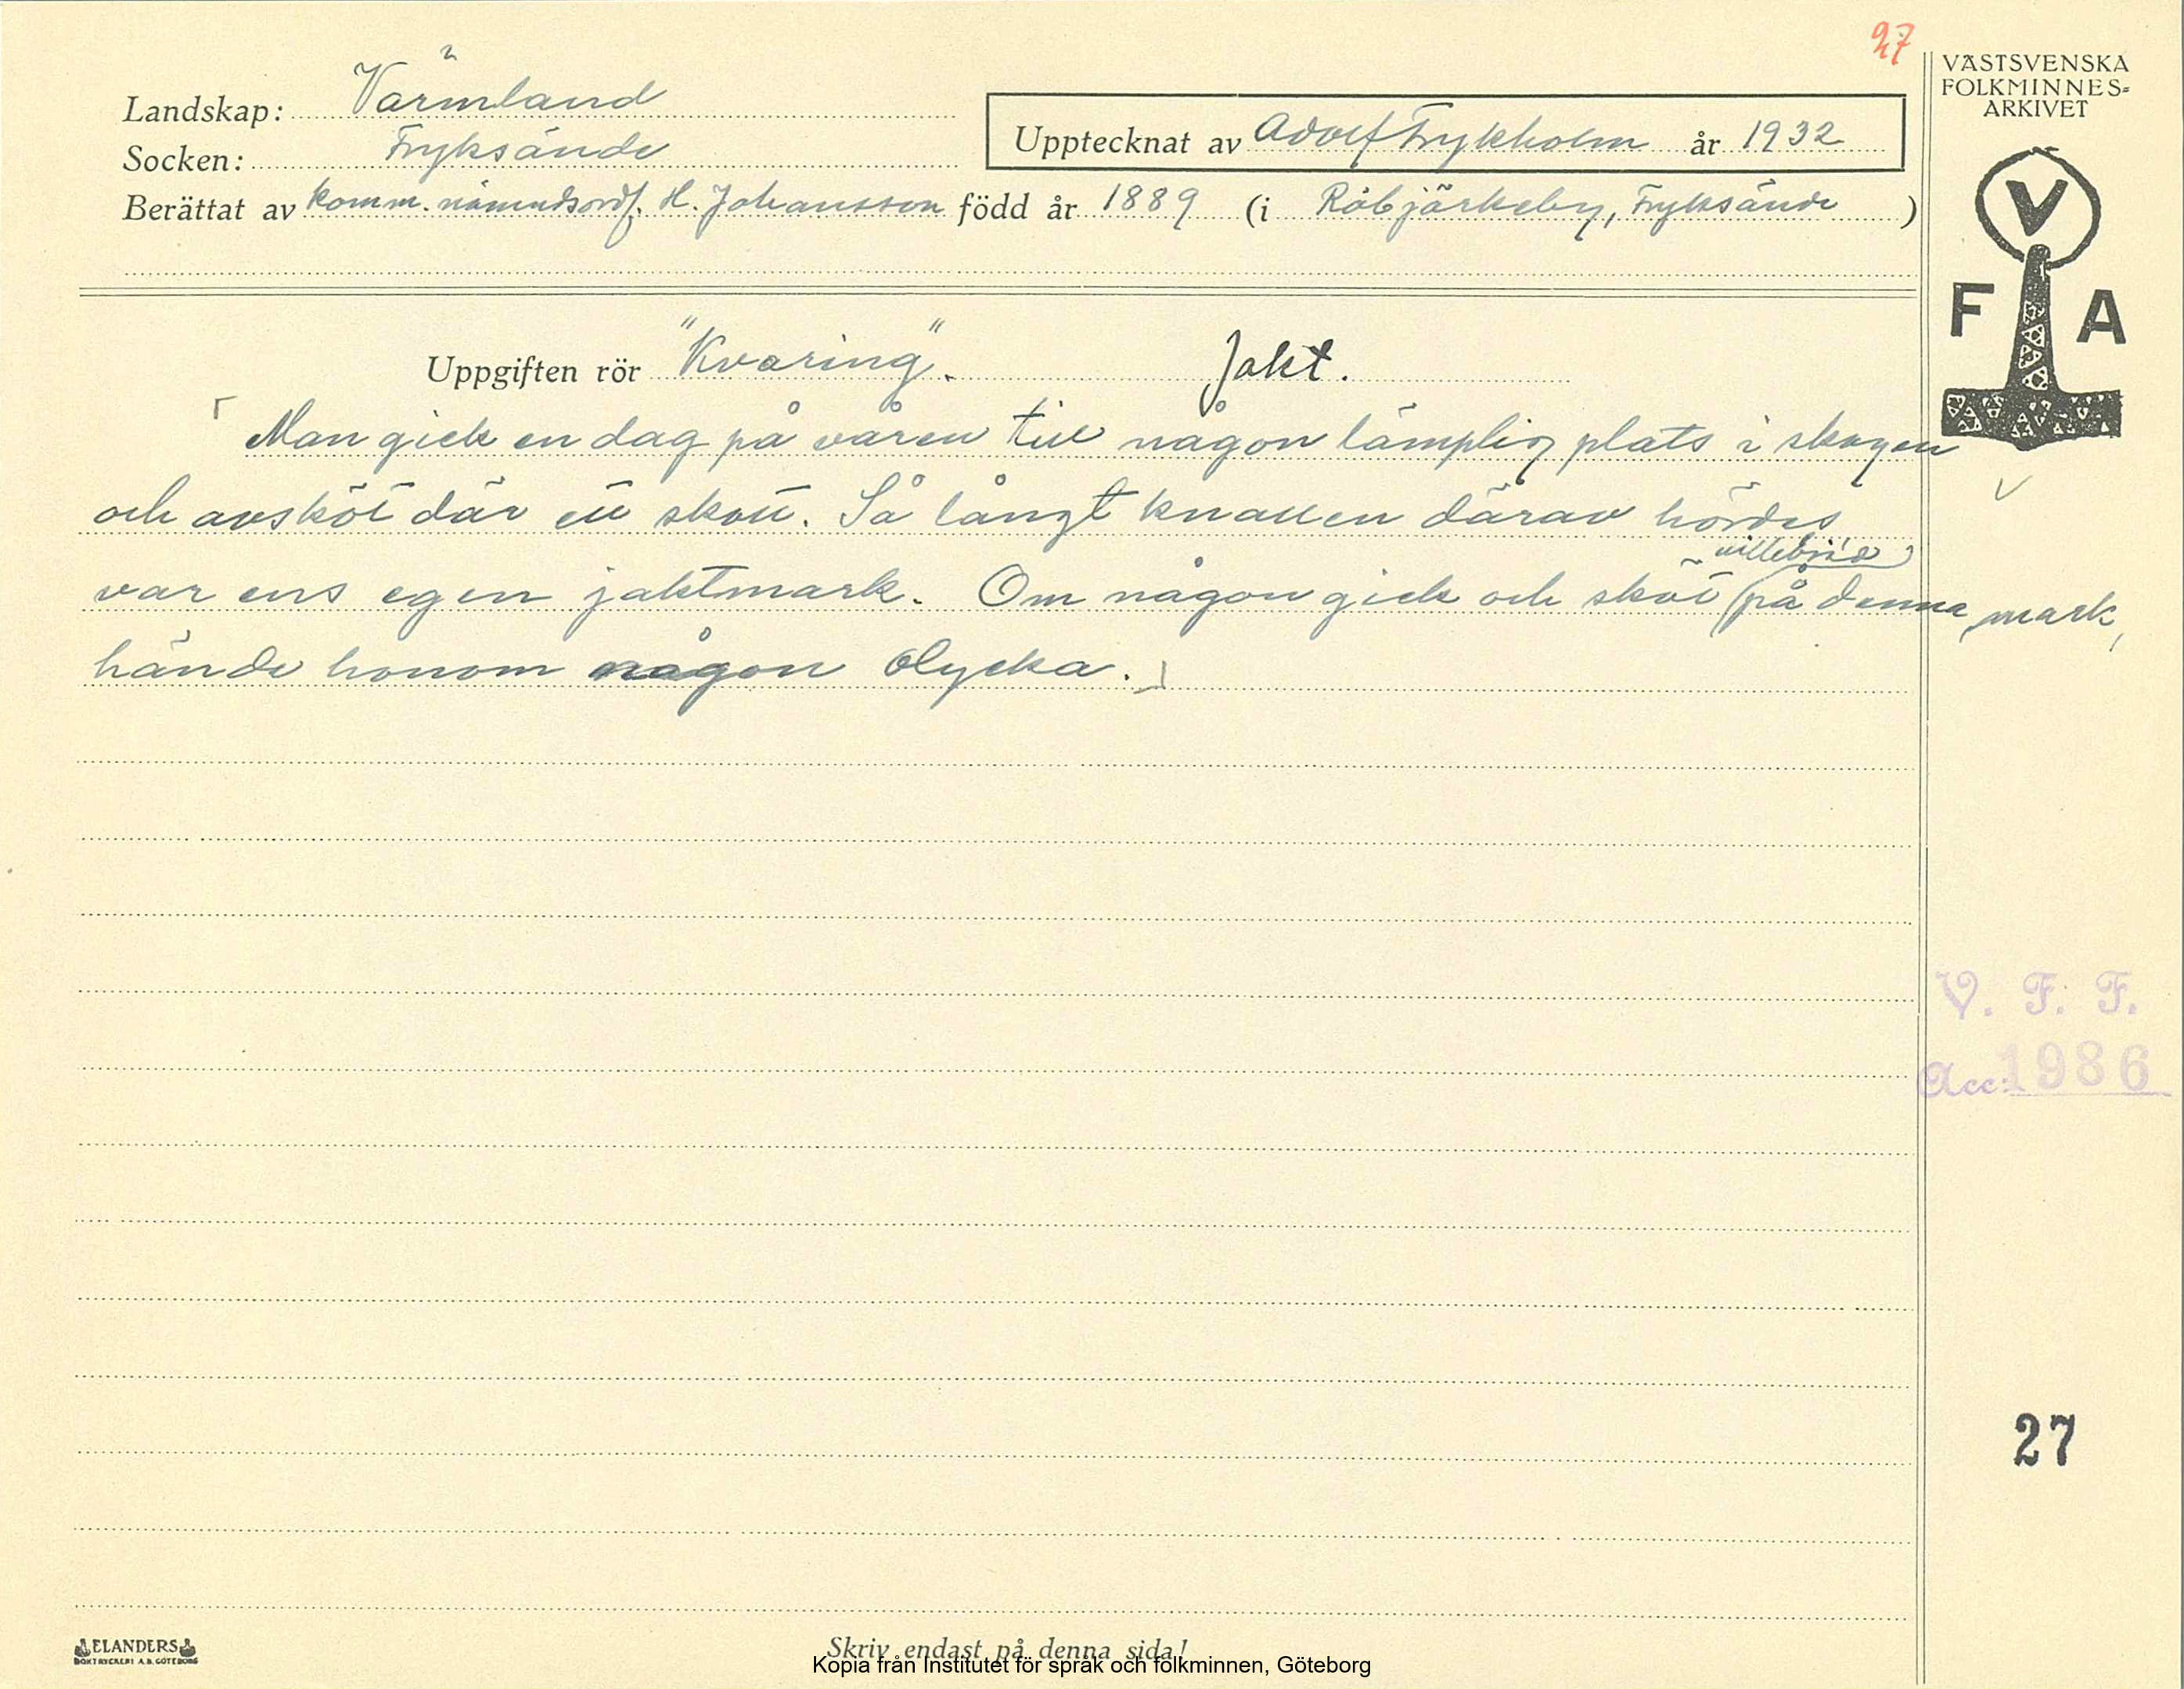 27
VÄSTSVENSKA
FOLKMINNES=
ARKIVET
Landskap: Värmland
Socken: Fryksände
Upptecknat av Adolf Frykholm år 1932
Berättat av komm. nämndsordf. H. Johansson född år 1889 (i Råbjörkeby, Fryksände)
V
F A
Uppgiften rör "Kvaring". Jakt.
Man gick en dag på våren till någon lämplig plats i skogen
och avsköt där ett skott. Så långt knallen därav hördes
villebråd
var ens egen jaktmark. Om någon gick och sköt på denna mark,
hände honom någon olycka.
V. F. F.
Acc: 1986
27
ELANDERS
BOKTRYCKERI A.B. GÖTEBORG
Skriv endast på denna sida!
Kopia från Institutet för språk och folkminnen, Göteborg